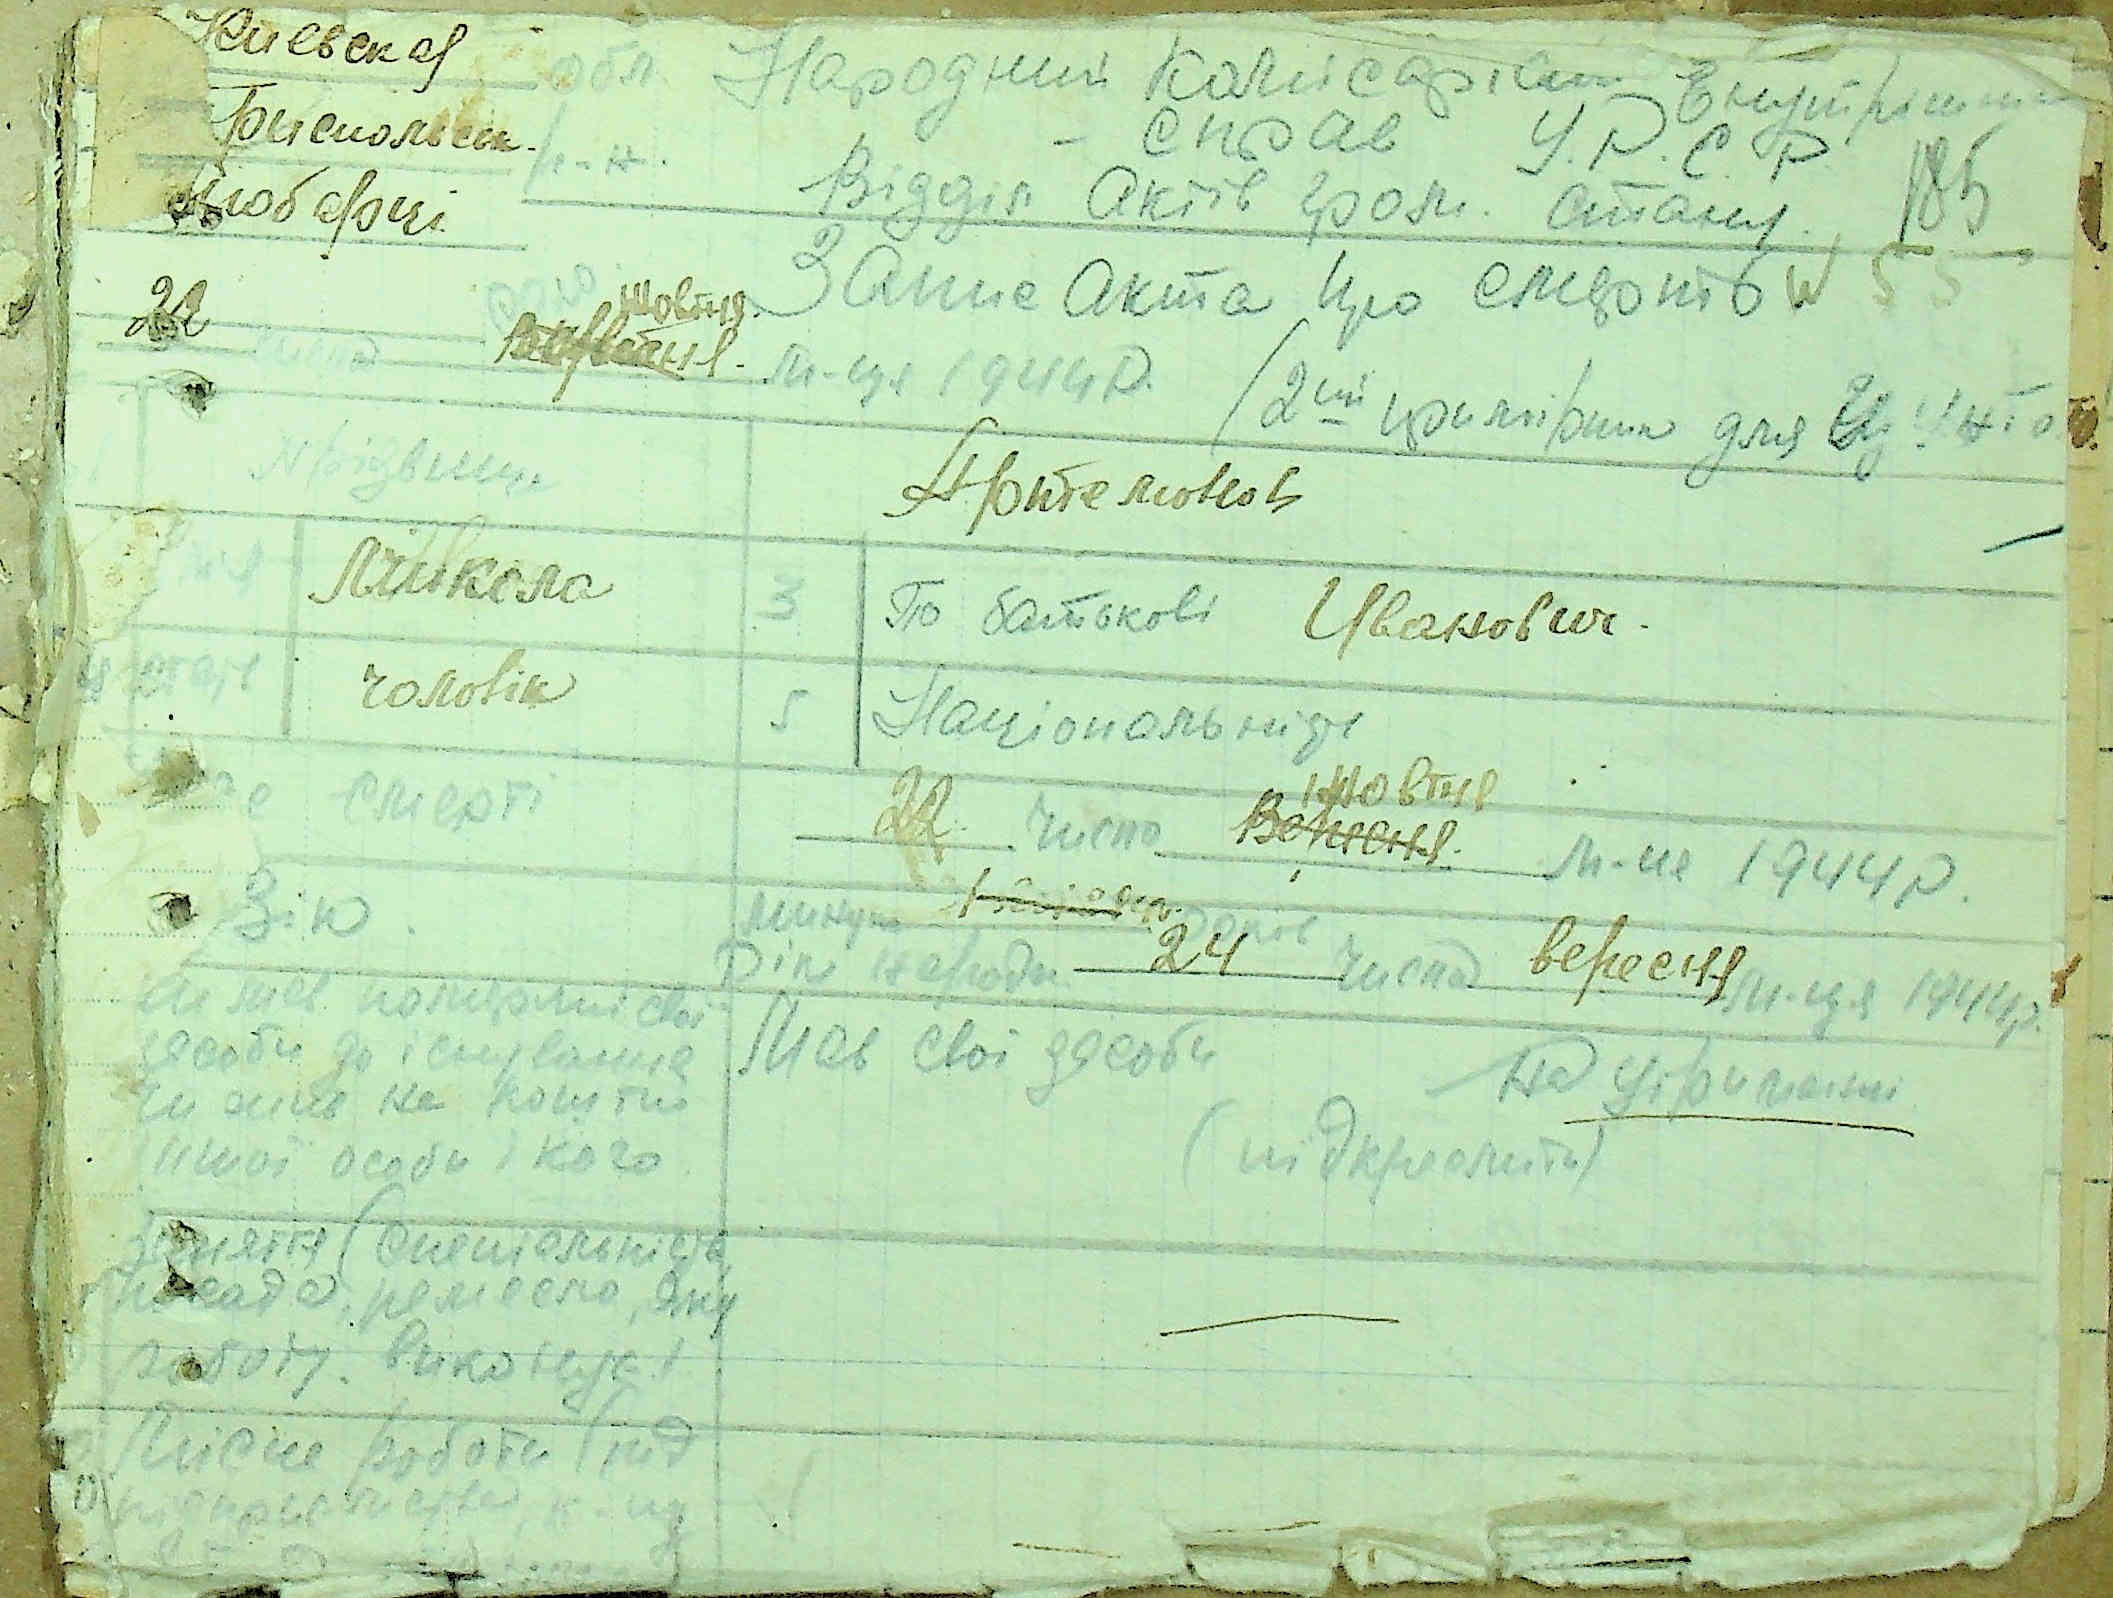 Киевская обл. Народний Комісаріат Внутрішніх
Биспольськ. р-н. - справ У.Р.С.Р.
Любарці Відділ Актів Гром. стану. 185
Запис Акта про смерть N 55
22 числа жовтня м-ця 1944 р. (2ий примірник для
Прізвище Артемонов
Імя Микола 3 По батькові Иванович.
4 стать чоловік 5 Національність
смерті 22 числа жовтня Вересня м-ця 1944 р.
Вік минуло років
Рік народж. 24 числа вересня м-ця 1944 р.
Чи мав померлий свої
засоби до існування
чи жив на кошти
іншої особи і кого
Мав свої засоби На утриманні
(підкреслити)
Заняття (Спеціальність,
посада, ремесло, яку
роботу виконував)
Місце роботи (під
підприємства,